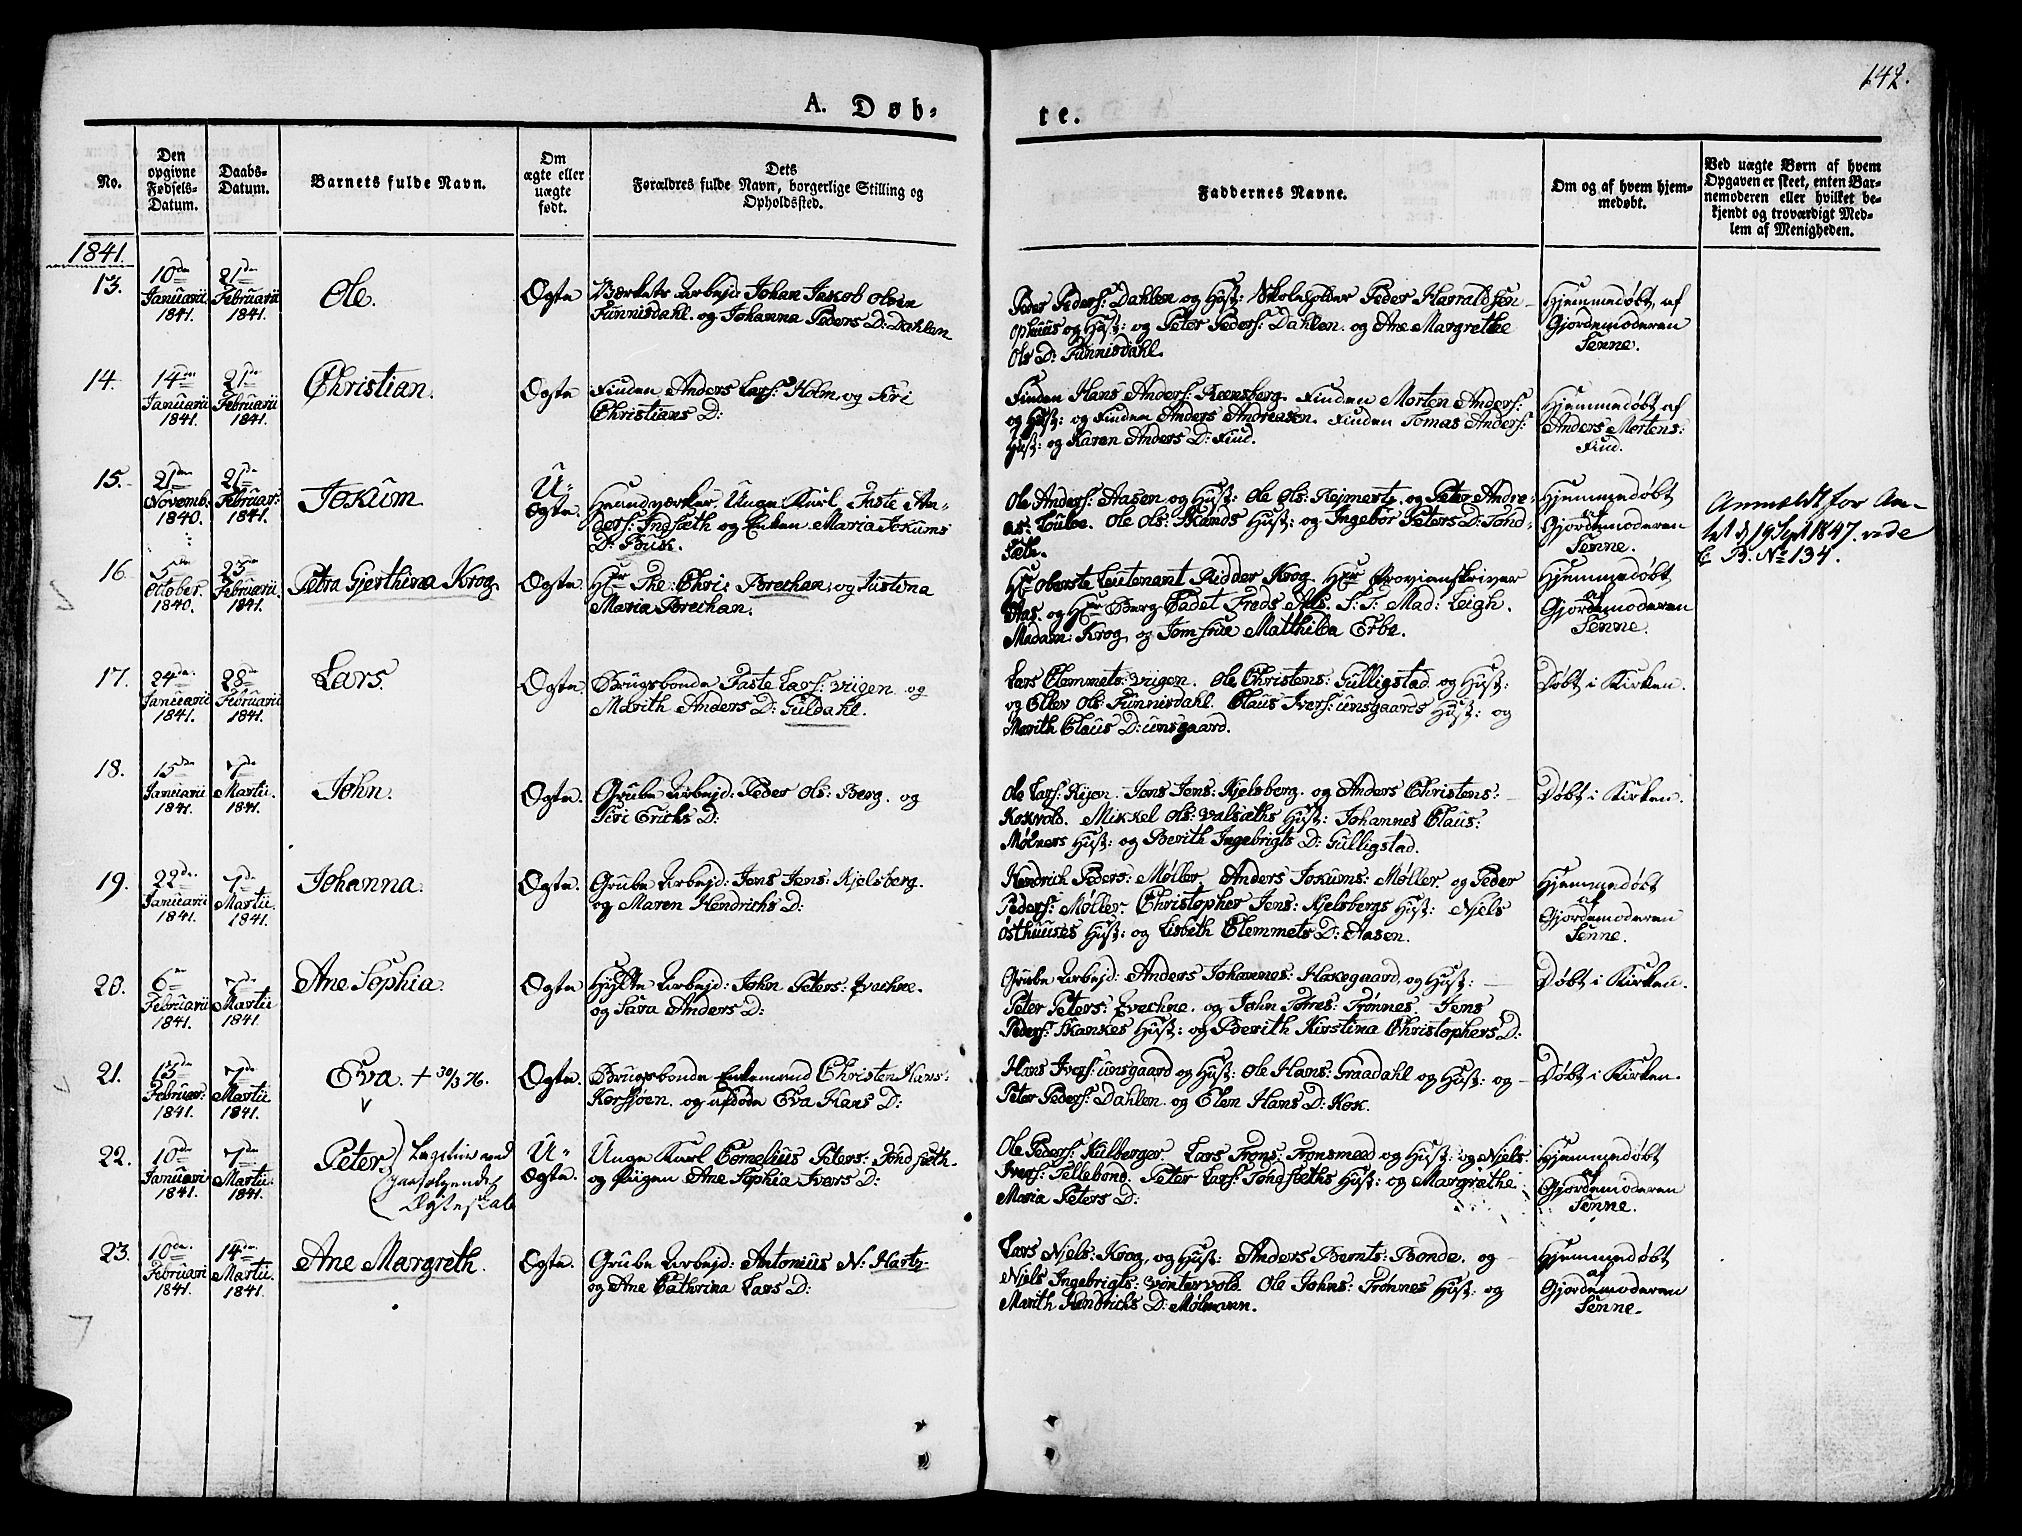 142.
A. Døb-
te.
No.
Den
opgivne
Fødsels-
Datum.
Daabs-
Datum.
Barnets fulde Navn.
Om
ægte eller
uægte
født.
Dets
Forældres fulde Navn, borgerlige Stilling og
Opholdssted.
Faddernes Navne.
Om og af hvem hjem-
medøbt.
Ved uægte Børn af hvem
Opgaven er skeet, enten Bar-
nemoderen eller hvilket be-
kjendt og troværdigt Med-
lem af Menigheden.
1841.
13.
10de
Januarii
1841.
21de
Februarii
1841.
Ole.
Ægte
Værkets Arbejd: Johan Jakob Olsen
Funnisdahl. og Johanna Peders D: Dahlen
Peder Peders: Dahlen og Hust: Skoleholder Peder Haraldsen
Ophuus og Hust: og Peter Peders: Dahlen. og Ane Margrethe
Ols D: Funnisdahl.
Hjemmedøbt af
Gjordemoderen
Senne.
14.
14de
Januarii
1841.
21de
Februarii
1841.
Christian.
Ægte
Finden Anders Lars: Holm og Siri
Christians D:
Finden Hans Anders: Reensberg. Finden Morten Anders:
og Hust: og Finden Anders Andreasen. Finden Tomas Anders:
Hust: og Karen Anders D: Find.
Hjemmedøbt af
Anders Mortens:
Find.
15.
21de
Novemb:
1840.
21de
Februar:
1841.
Jokum
U-
Ægte.
Haandværker Unge Karl Faste An-
ders: Indsæth og Enken Maria Jokums
D: Busk.
Ole Anders: Aasen og Hust: Ole Ols: Rejmerts. og Peter Andre-
as: Loulve. Ole Ols: Skands Hust: og Ingebor Peters D: Tønd-
sæth.
Hjemmedøbt
af
Gjordemoderen
Senne.
Anmældt for Am-
tet d 19 Sept 1847. vide
C. B. No 134.
16
5de
October.
1840.
23de
Februarii
1841.
Petra Gjerthina Krog.
Ægte.
Hr The: Chri: Brechan, og Justina
Maria Brechan.
Hr Oberste Leutenant Ridder Krog. Hr Provianskriver
Aas. og Hr Berg Cadet Freds Als. S: T: Mad: Leigh.
Madam: Krog og Jomfrue Matthilda Erbe.
Hjemmedøbt
af
Gjordemoderen
Senne.
17.
24de
Januarii
1841.
28de
Februarii
1841.
Lars.
Ægte.
Brugsbonde Faste Lars: Viigen. og
Marith Anders D: Guldahl.
Lars Clemmets: Viigen. Ole Christens: Gulligstad og Hust:
og Ellev Ols: Funnisdahl. Claus Ivers: Unsgaards Hust: og
Marith Claus D: Unsgaard.
Døbt i Kirken.
18.
15de
Januarii
1841.
7de
Martii.
1841.
John.
Ægte.
Grube Arbejd: Peder Ols: Berg. og
Siri Erichs D:
Ole Lars: Rijen. Jens Jens: Kjelsberg. og Anders Christens:
Kokvold. Mikkel Ols: Valsæths Hust: Johannes Claus:
Mølners Hust: og Berith Ingebrigts D: Gulligstad.
Døbt i Kirken.
19.
22de
Januarii
1841.
7de
Martii.
1841.
Johanna.
Ægte.
Grube Arbejd: Jens Jens: Kjelsberg.
og Maren Hendrichs D:
Hendrich Peders: Møller. Anders Jokums: Møller. og Peder
Peders: Møller. Christopher Jens: Kjelsbergs Hust: Niels
Østhuuses Hust: og Lisbeth Clemmets D: Aasen.
Hjemmedøbt
af
Gjordemoderen
Senne.
20.
6te
Februarii
1841.
7de
Martii
1841.
Ane Sophia.
Ægte
Hytte Arbejd: John Peters: Evachne.
og Sara Anders D:
Grube Arbejd: Anders Johannes: Hakegaard, og Hust:
Peter Peters: Evechne. og John Torres: Trønnes. Jens
Peders: Skankes Hust: og Berith Kirstina Christophers D:
Døbt i Kirken.
21.
13de
Februar:
1841.
7de
Martii
1841.
Eva. + 30/3 76.
Ægte.
Brugsbonde Enkemand Christen Hans:
Korssjøen. og afdøde Eva Hans D:
Hans Ivers: Unsgaard og Hust: Ole Hans: Graadahl og Hust: og
Peter Peders: Dahlen. og Elen Hans D: Kok.
Døbt i Kirken.
22.
10de
Januari
1841.
7de
Martii.
1841.
Peter
Legitim ved
paafølgende
Ægteskab
U-
Ægte.
Unge Karl Cornelius Peters: Tøndsæth.
og Piigen Ane Sophia Ivers D:
Ole Peders: Kulberger. Lars Trons: Tronsmed og Hust: og Niels
Ivers: Tellebond. Peter Lars: Tøndsæths Hust: og Margrethe
Maria Peters D:
Hjemmedøbt
af
Gjordemoderen
Senne.
23.
10de
Februari
1841.
14de
Martii.
1841.
Ane Margreth.
Ægte.
Grube Arbejd: Antonius N: Harts-
og Ane Cathrina Lars D:
Lars Niels: Krog. og Hust: Anders Bernts: Bonde. og
Niels Ingebrigts: Vintervold. Ole Johns: Trønnes Hust: og
Marith Hendrichs D: Mølmann.
Hjemmedøbt
af
Gjordemoderen
Senne.